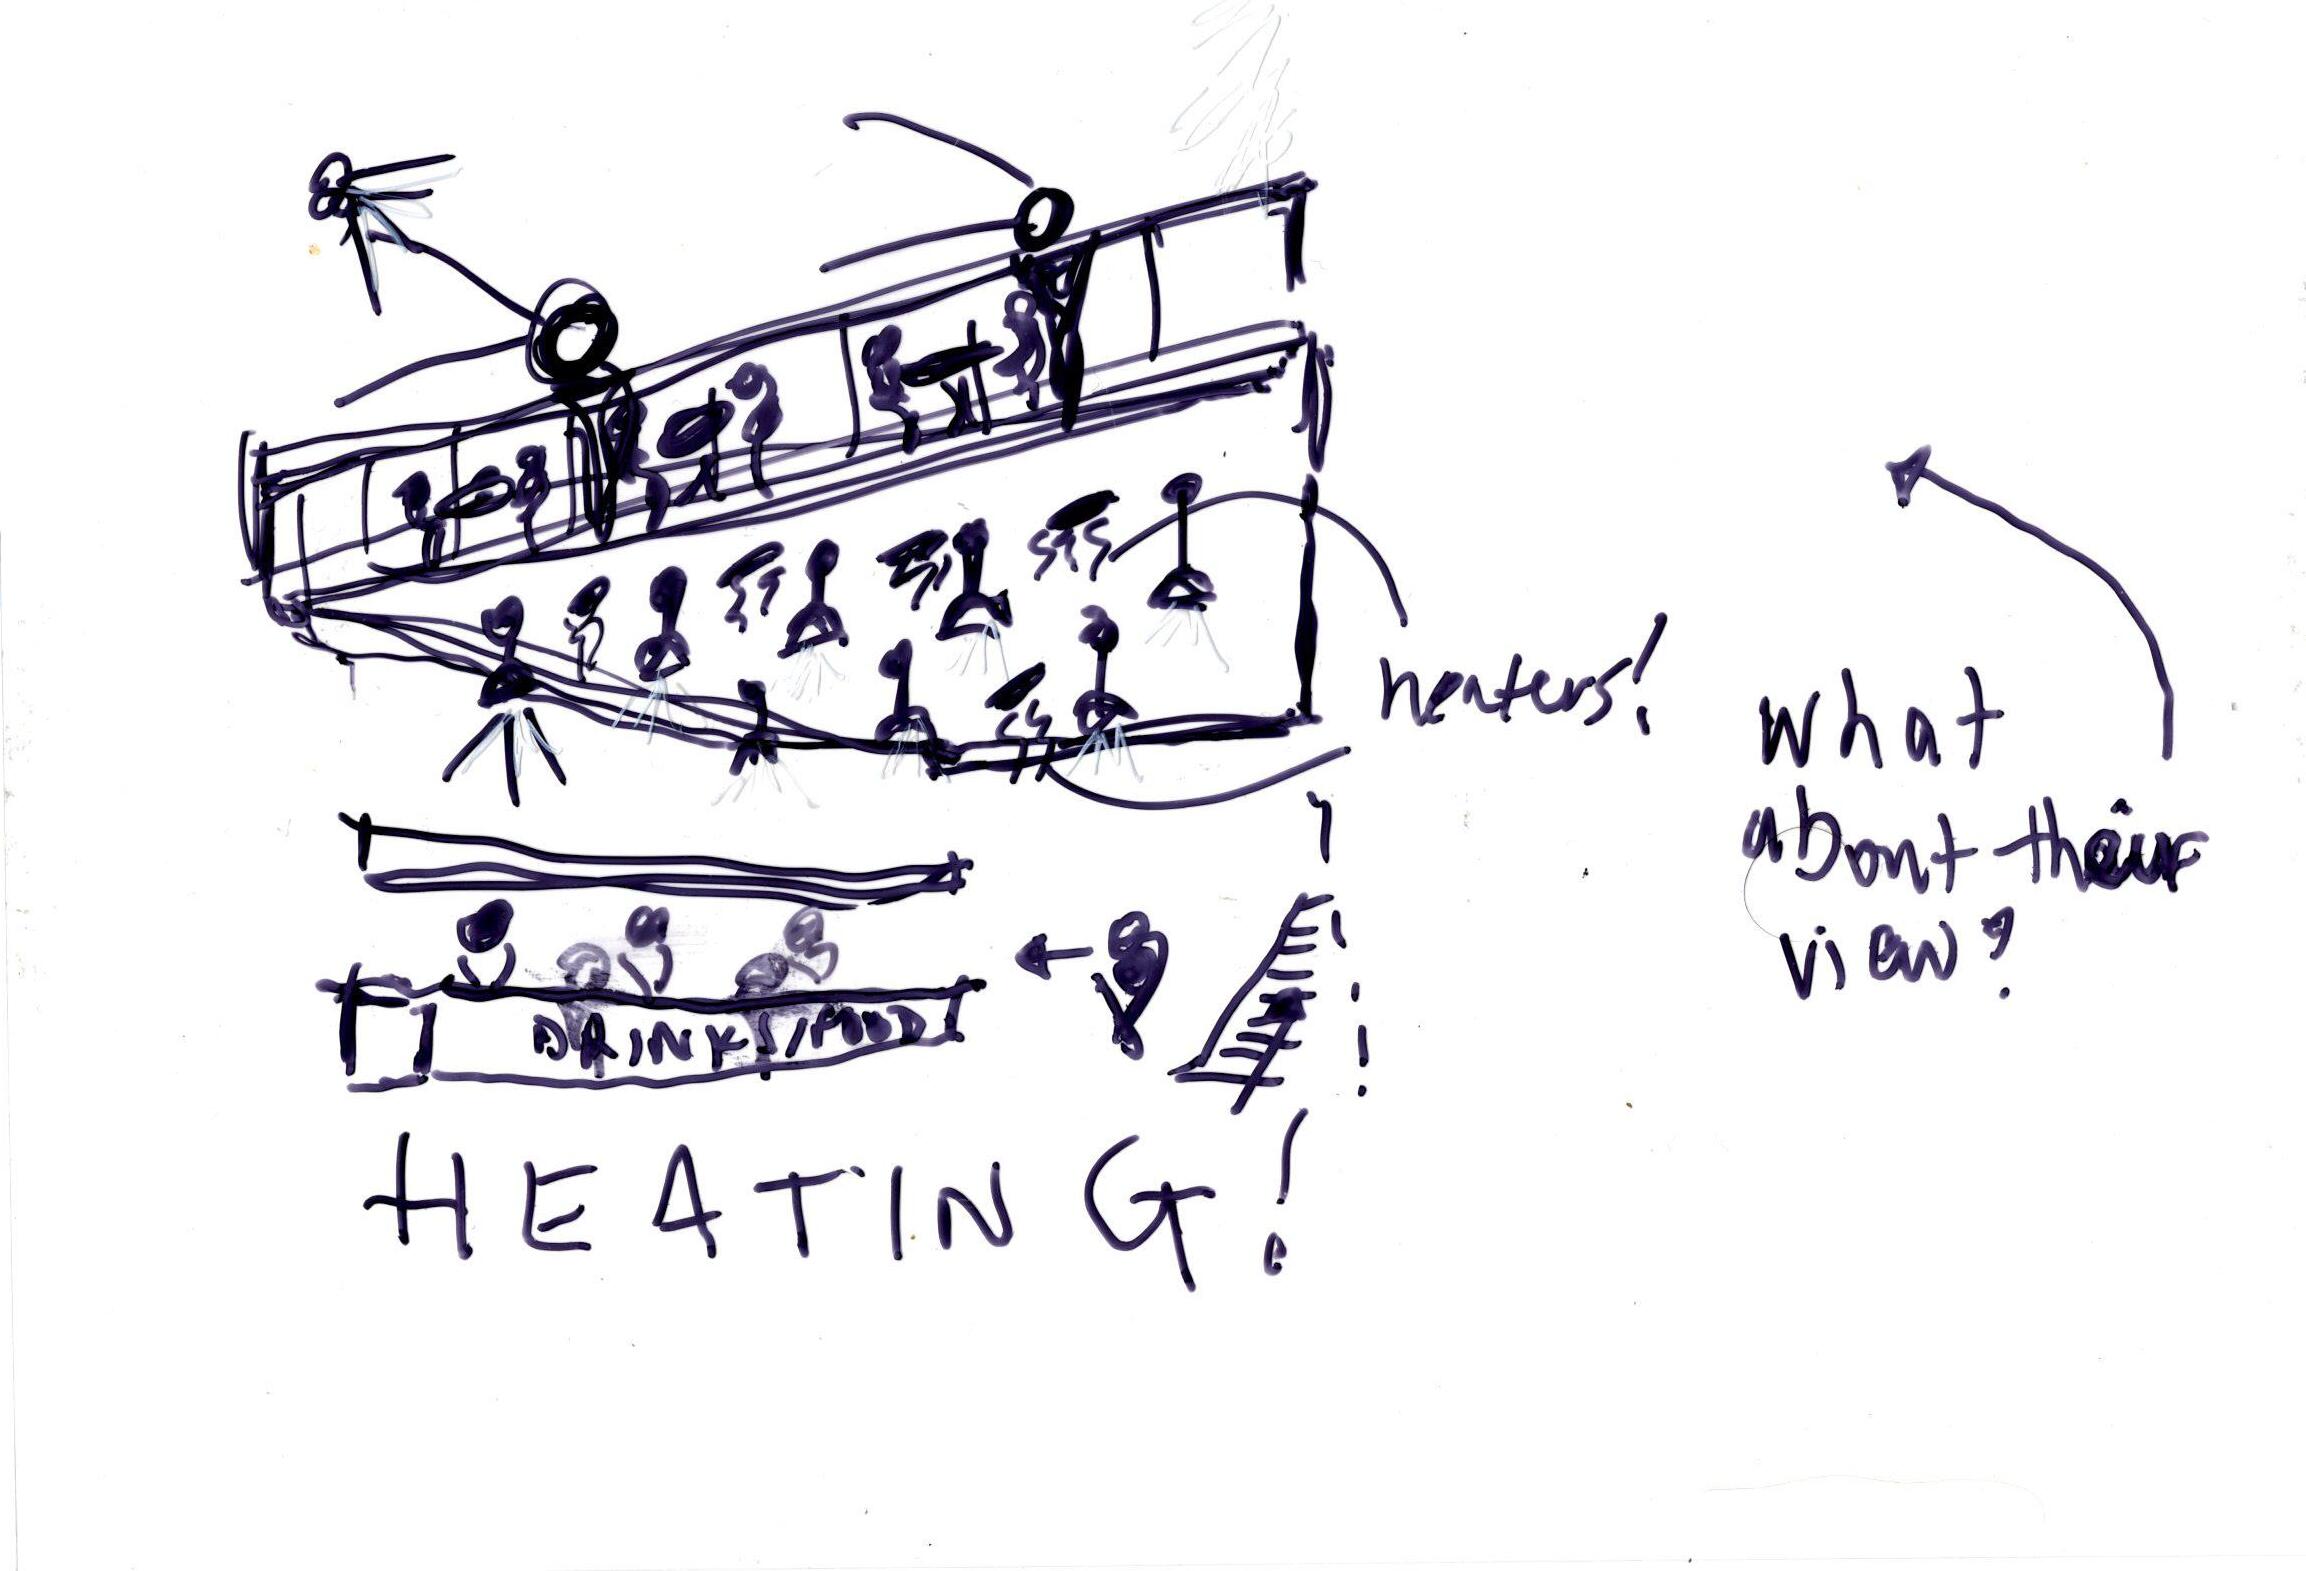 heaters!
what
about their
view?
DRINKS/FOOD
HEATING!